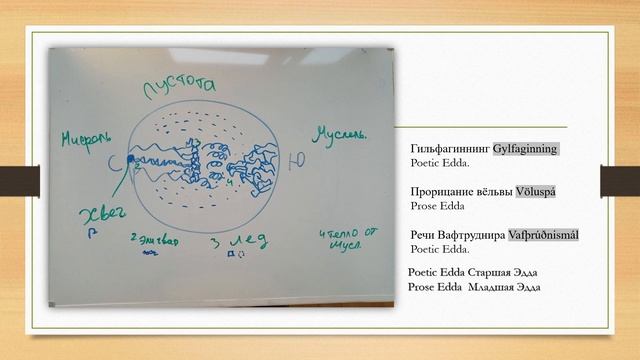 Пустота
Нифлль
Муспель.
С
Ю
2
4
Хвег
2 Эливаг
3 лед
4 тепло от
Мусп.
Гильфагиннинг Gylfaginning
Poetic Edda.
Прорицание вёльвы Völuspá
Prose Edda
Речи Вафтруднира Vafþrúðnismál
Poetic Edda.
Poetic Edda Старшая Эдда
Prose Edda Младшая Эдда